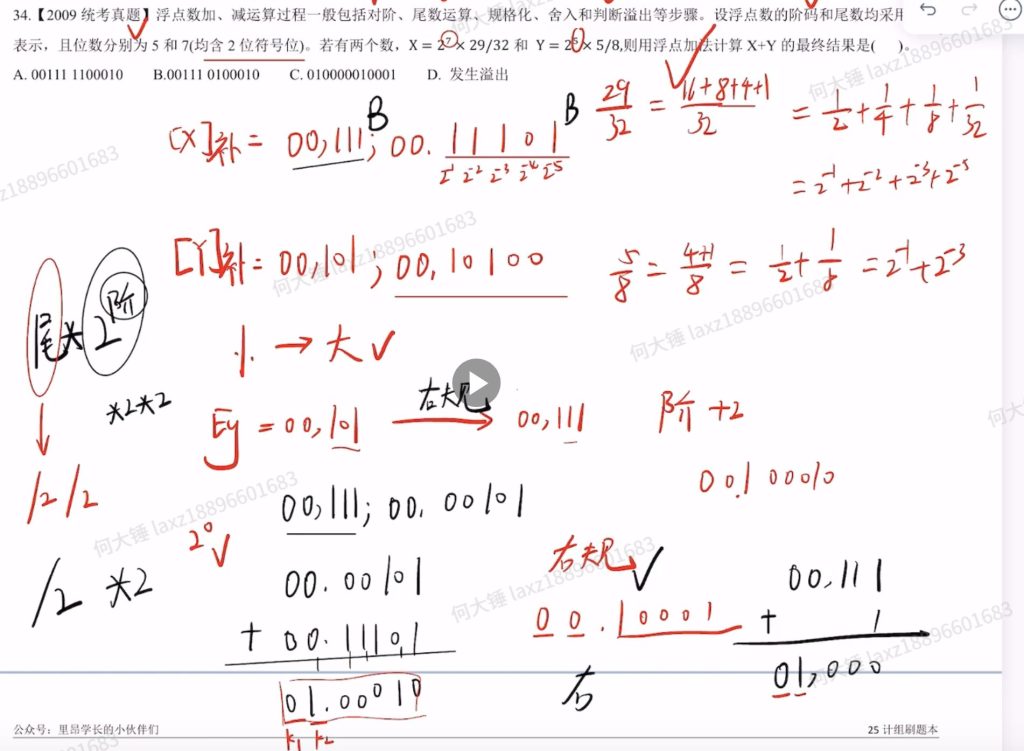 34.【2009 统考真题】浮点数加、减运算过程一般包括对阶、尾数运算、规格化、舍入和判断溢出等步骤。设浮点数的阶码和尾数均采用
表示，且位数分别为 5 和 7(均含 2 位符号位)。若有两个数，X = 2⁷ × 29/32 和 Y = 2⁵ × 5/8,则用浮点加法计算 X+Y 的最终结果是( )。
A. 00111 1100010 B.00111 0100010 C. 010000010001 D. 发生溢出
29/32 = 16+8+4+1/32 = 1/2 + 1/4 + 1/8 + 1/32
B B
[X]补 = 00,111; 00. 11101
2⁻¹ 2⁻² 2⁻³ 2⁻⁴ 2⁻⁵
= 2⁻¹ + 2⁻² + 2⁻³ + 2⁻⁵
[Y]补 = 00,101; 00, 10100
5/8 = 4+1/8 = 1/2 + 1/8 = 2⁻¹ + 2⁻³
尾*2阶
小 → 大 ✓
*2*2
Ey = 00,101 右规 → 00,111 阶 +2
/2 /2
00.100010
00,111; 00. 00101
2⁰ ✓
/2 *2
00. 00101
+ 00. 11101
01. 00010
K₁ K₂
右规 ✓
00. 10001
右
00,111
+ 1
01,000
公众号：里昂学长的小伙伴们
25 计组刷题本
何大锤 laxz18896601683